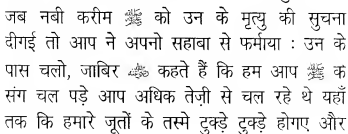 जब नबी करीम ﷺ को उन के मृत्यु की सुचना
दीगई तो आप ने अपनो सहाबा से फर्माया : उन के
पास चलो, जाबिर ﷺ कहते हैं कि हम आप ﷺ क
संग चल पड़े आप अधिक तेज़ी से चल रहे थे यहाँ
तक कि हमारे जूतों के तस्मे टुक्ड़े टुक्ड़े होगए और